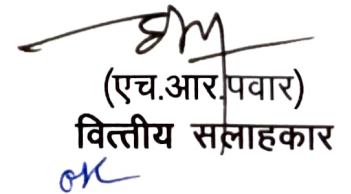 (एच.आर.पवार)
वित्तीय सलाहकार
ok